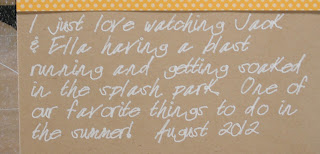 I just love watching Jack
& Ella having a blast
running and getting soaked
in the splash park. One of
our favorite things to do in
the summer! August 2012